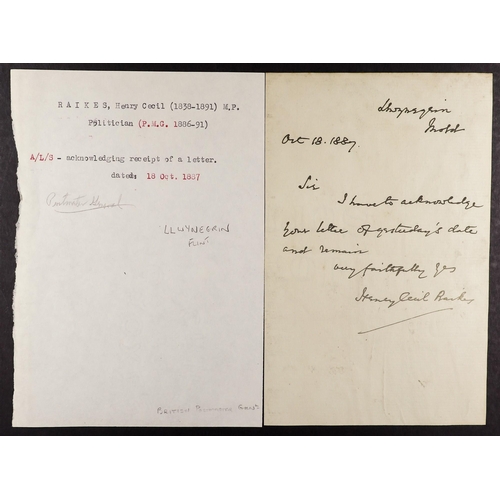 RAIKES, Henry Cecil (1838-1891) M.P.
Politician (P.M.G. 1886-91)
A/L/S - acknowledging receipt of a letter.
dated: 18 Oct. 1887
Postmaster General
LLWYNEGRIN
FLINT
Llwynegrin
Mold
Oct 18. 1887.
Sir
I have to acknowledge
your letter of yesterday's date
and remain
very faithfully yrs
Henry Cecil Raikes